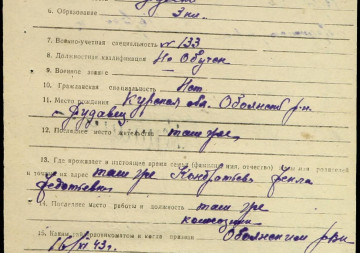 6. Образование 3 кл.
7. Военно-учетная специальность № 133
8. Должностная квалификация Не обучен
9. Военное звание
10. Гражданская специальность Нет
11. Место рождения Курская обл. Обоянский р-н.
12. Последнее место жительства там же,
13. Где проживает в настоящее время семья (фамилия, имя, отчество) жены или родителей
и точный их адрес там же Кондратьева Фекла
Федотьевна
14. Последнее место работы и должность там же
колхозник
15. Каким райвоенкоматом и когда призван Обоянским рвк
16/III 43 г.